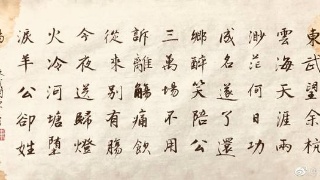 東武望余杭
雲海天涯兩
渺茫何日功
成名遂了還
鄉醉笑陪公
三萬場不用
訴離觴痛飲
從來別有腸
今夜送歸燈
火冷河塘墮
淚羊公卻姓